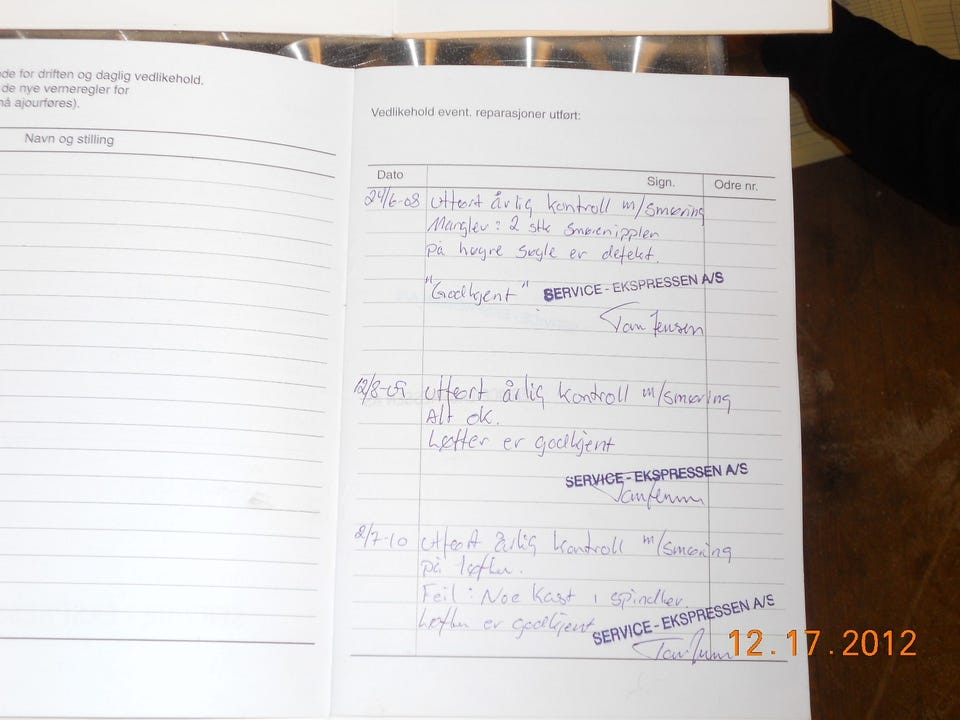 de for driften og daglig vedlikehold.
de nye verneregler for
må ajourføres).
Navn og stilling
Vedlikehold event. reparasjoner utført:
Dato Sign. Odre nr.
24/6-08 Utført årlig kontroll m/smøring
Mangler: 2 stk smørenipplen
på høyre søyle er defekt.
"Godkjent" SERVICE - EKSPRESSEN A/S
Jensen
12/8-09 Utført årlig kontroll m/smøring
Alt ok.
Løfter er godkjent
SERVICE - EKSPRESSEN A/S
2/7-10 Utført årlig kontroll m/smøring
på løfter.
Feil: Noe kast i spindler.
Løfter er godkjent SERVICE - EKSPRESSEN A/S
12.17.2012